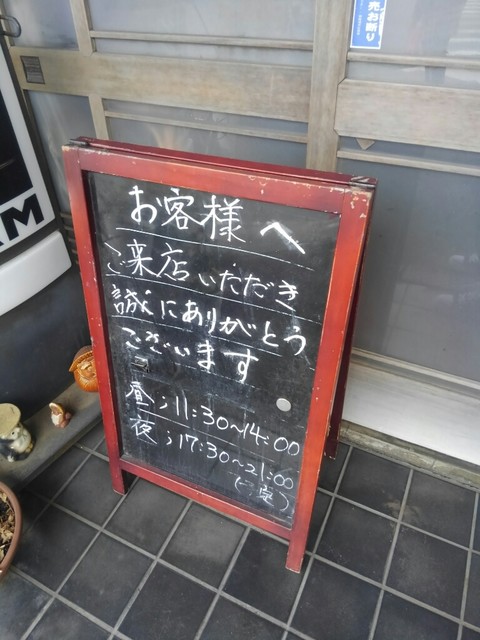 売お断り
お客様へ
ご来店いただき
誠にありがとう
ございます
昼;11:30~14:00
夜;17:30~21:00